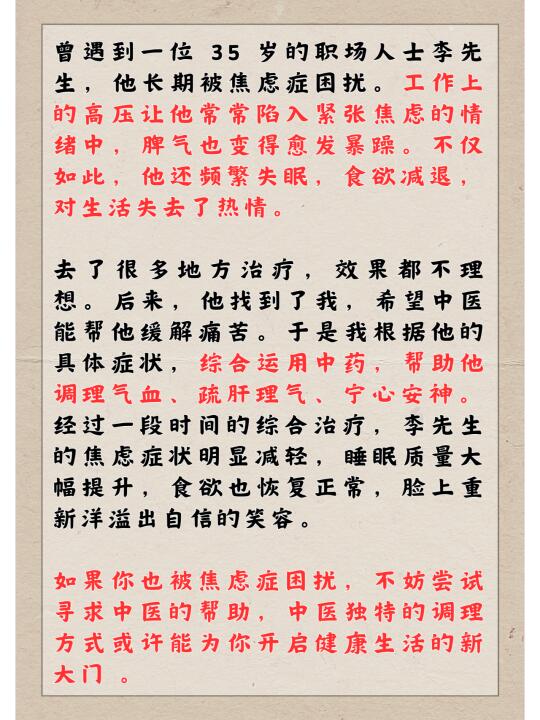 曾遇到一位 35 岁的职场人士李先
生，他长期被焦虑症困扰。工作上
的高压让他常常陷入紧张焦虑的情
绪中，脾气也变得愈发暴躁。不仅
如此，他还频繁失眠，食欲减退，
对生活失去了热情。
去了很多地方治疗，效果都不理
想。后来，他找到了我，希望中医
能帮他缓解痛苦。于是我根据他的
具体症状，综合运用中药，帮助他
调理气血、疏肝理气、宁心安神。
经过一段时间的综合治疗，李先生
的焦虑症状明显减轻，睡眠质量大
幅提升，食欲也恢复正常，脸上重
新洋溢出自信的笑容。
如果你也被焦虑症困扰，不妨尝试
寻求中医的帮助，中医独特的调理
方式或许能为你开启健康生活的新
大门 。